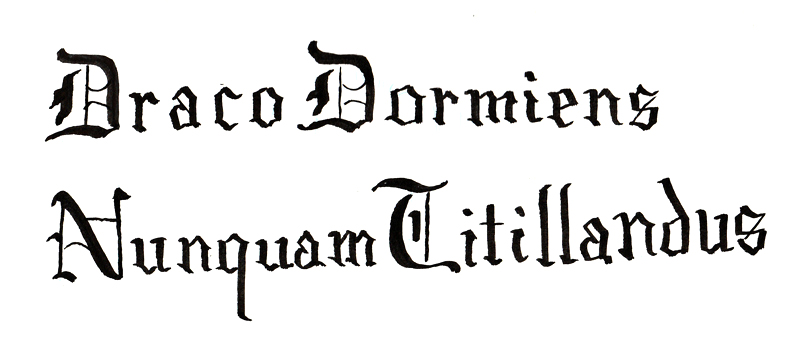 Draco Dormiens
Nunquam Titillandus